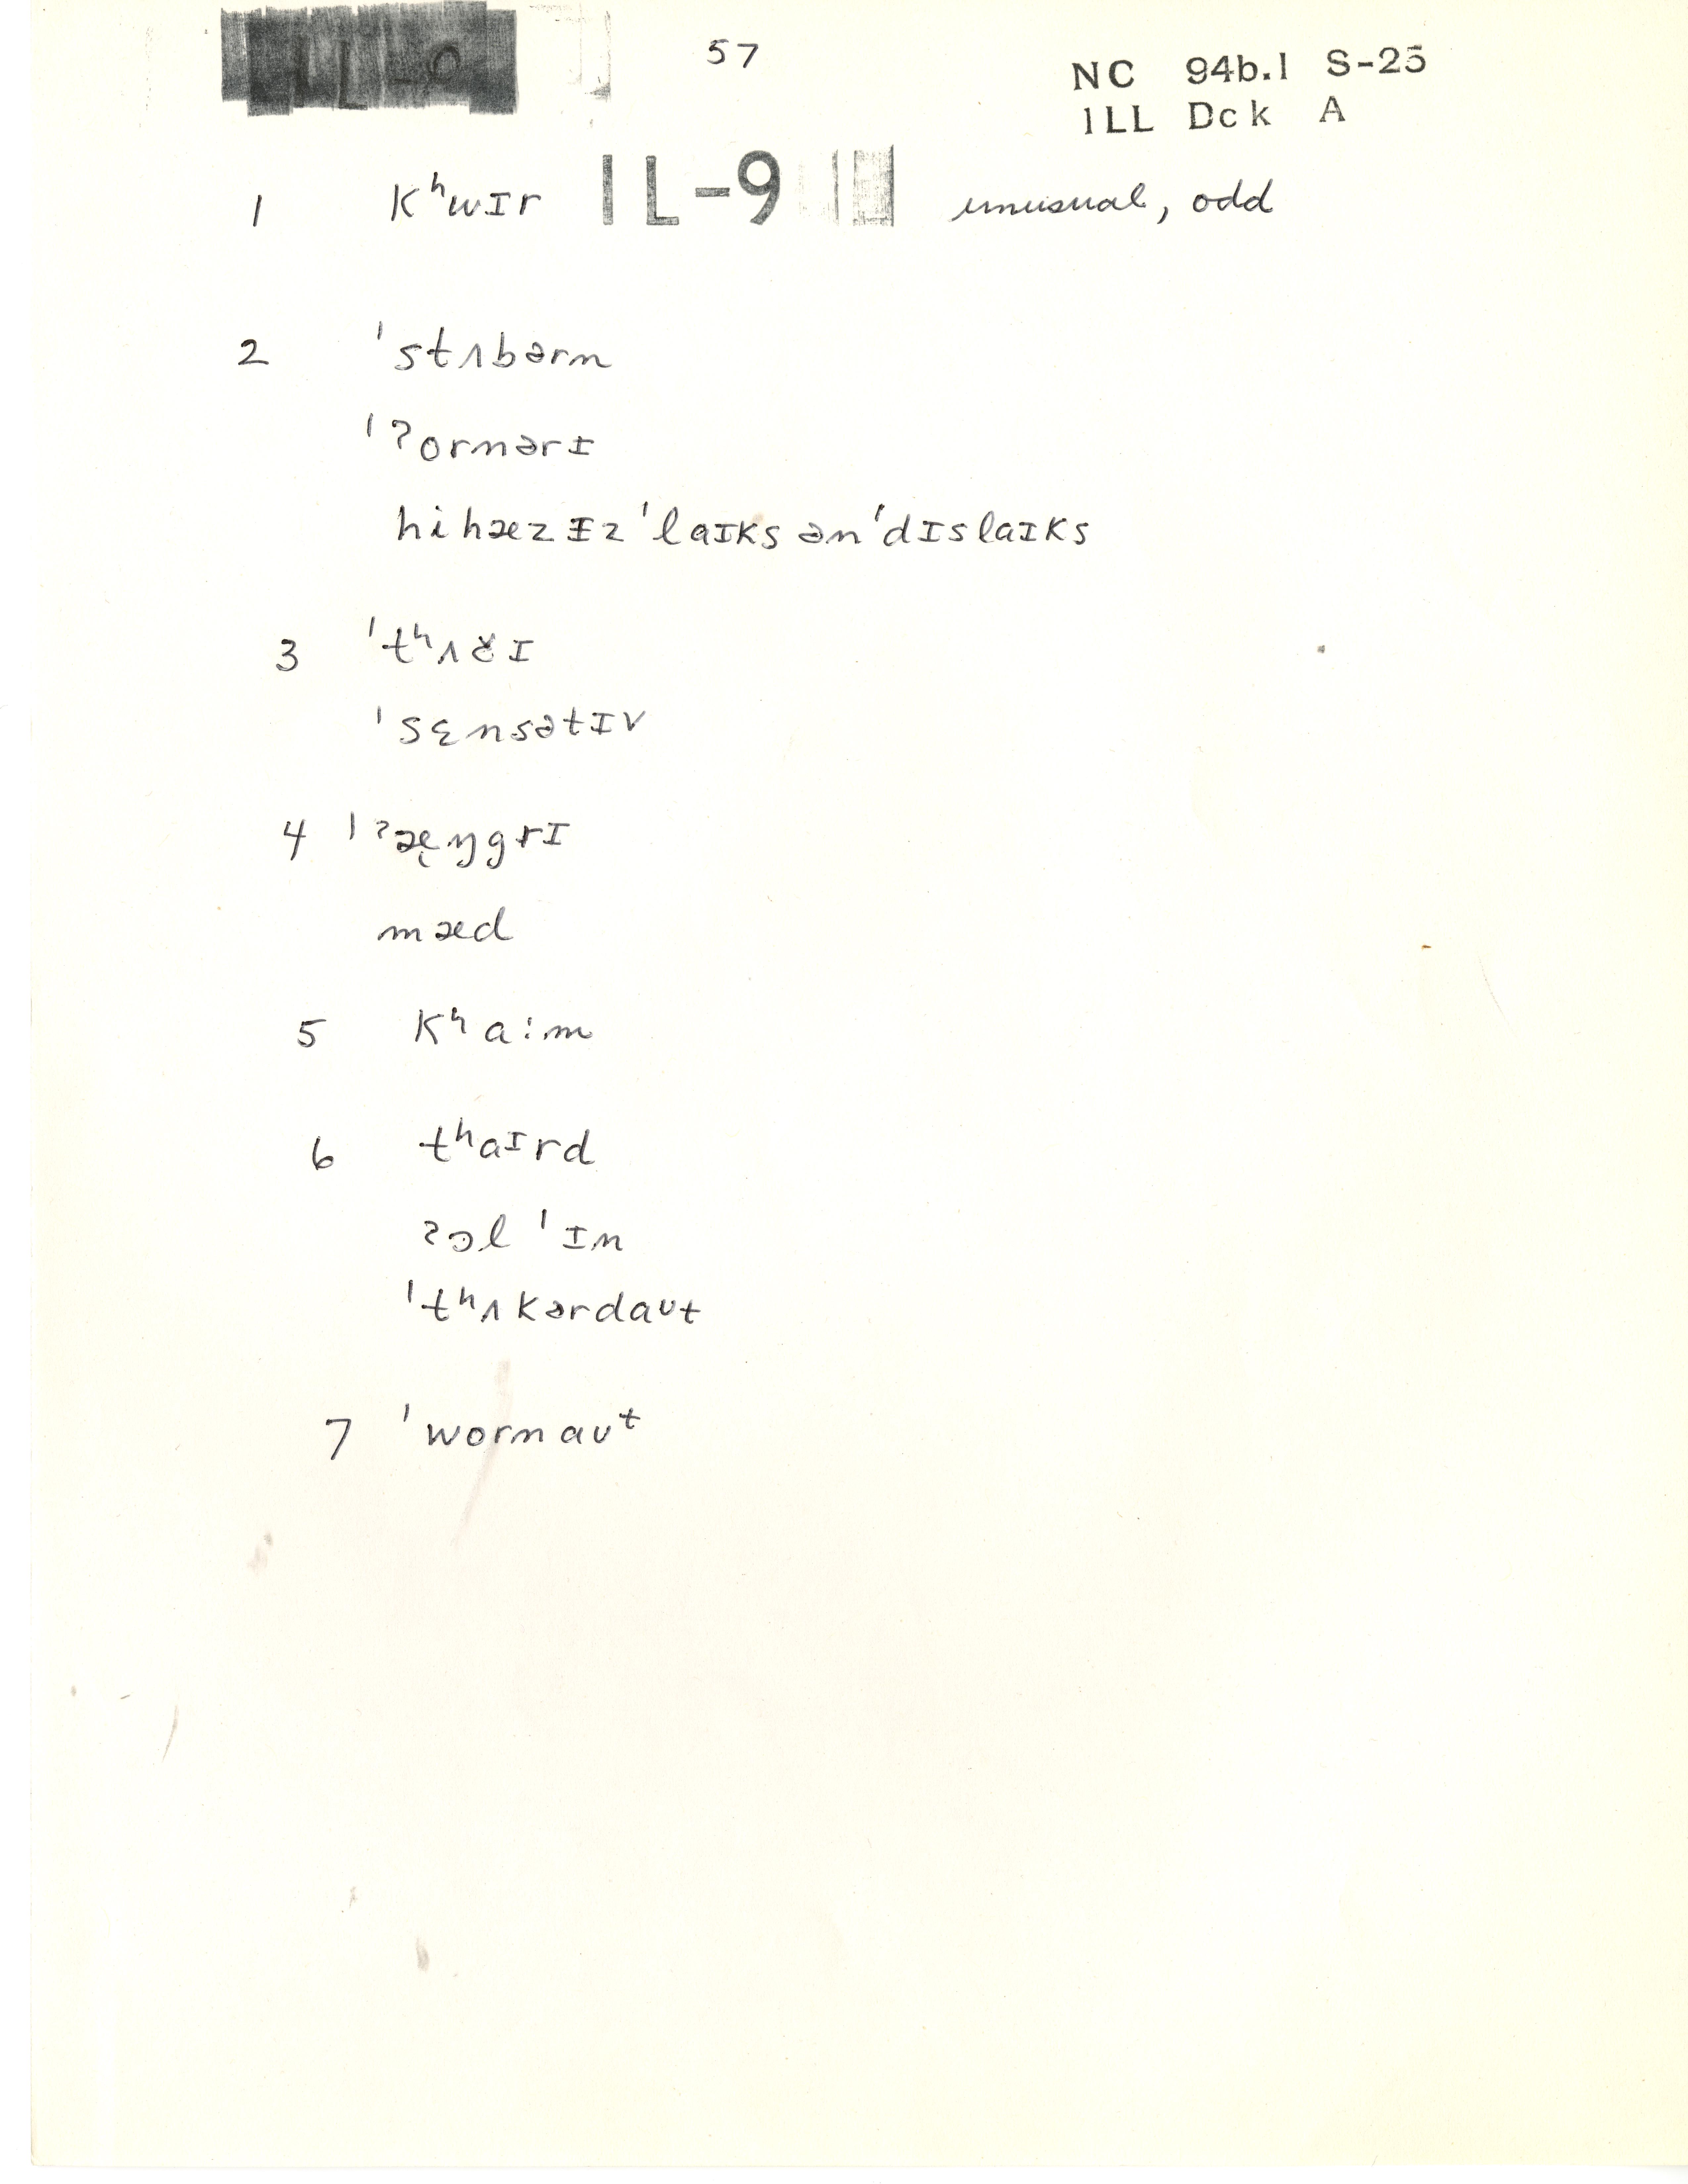 57
NC 94b.1 S-25
ILL Dck A
IL-9
1 kʰwɪr unusual, odd
2 ˈstʌbərn
ˈʔornərɪ
hi hæz ɪz ˈlaɪks ən ˈdɪslaɪks
3 ˈtʰʌɪ
ˈsɛnsətɪv
4 ˈʔæŋgrɪ
mæd
5 kʰa:m
6 tʰaɪrd
ʔɔl ˈɪn
ˈtʰʌkərdaʊt
7 ˈwornaʊt